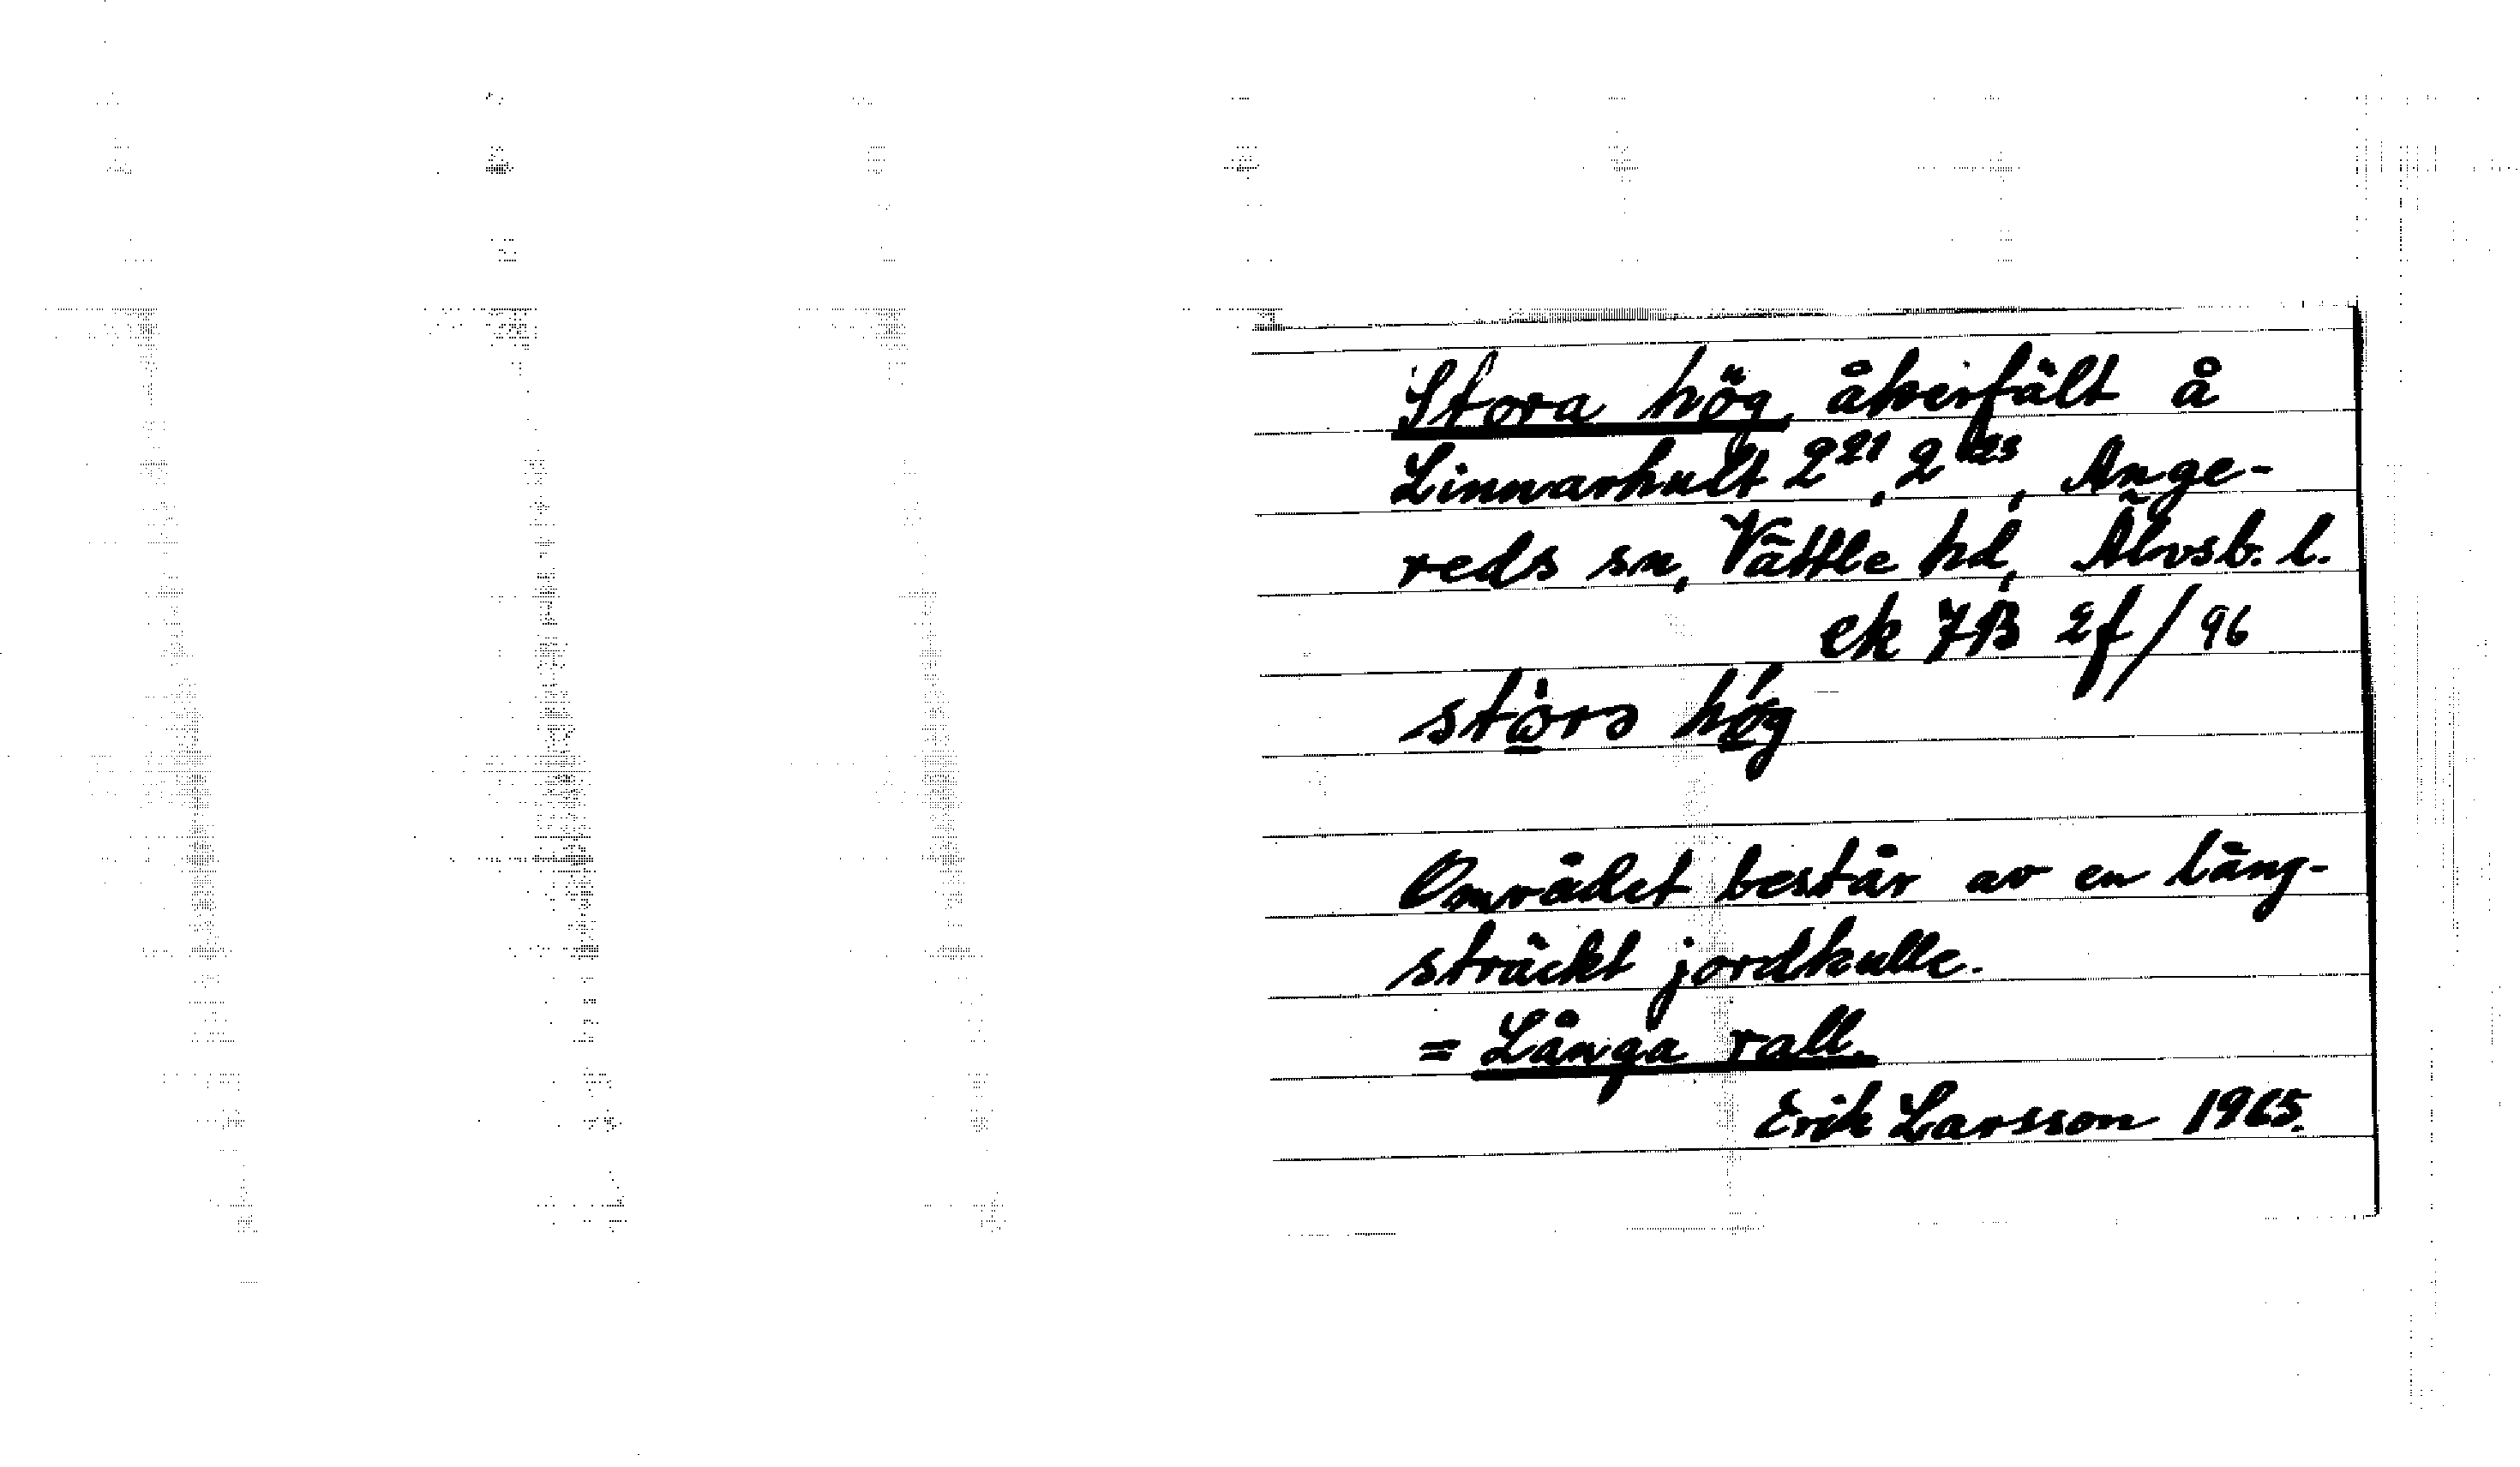 Stora hög, åkerfält å
Linnarhult 2²¹, 2¹²³, Ange-
reds sn, Vättle hd, Älvsb. l.
ek 7B 2f/96
störs høg
Området består av en lång-
sträckt jordkulle.
= Långa rall.
Erik Larsson 1965.